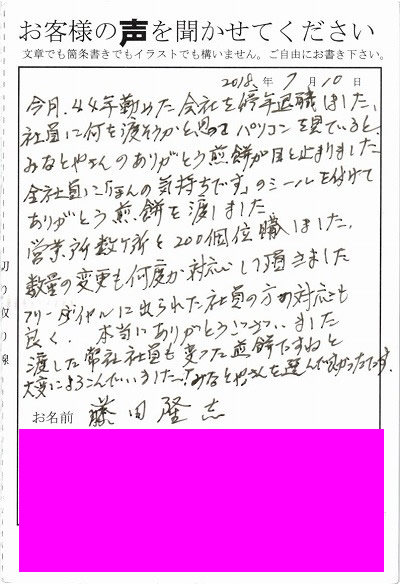 お客様の声を聞かせてください
文章でも箇条書きでもイラストでも構いません。ご自由にお書き下さい。
2018年 7月10日
今月、44年勤めた会社を停年退職しました、
社員に何を渡そうかと思ってパソコンを見ていると、
みなとやさんのありがとう煎餅が目と止まりました
全社員に「ほんの気持ちです」のシールを付けて
ありがとう煎餅を渡しました
営業所数ケ所と200個位購しました、
数量の変更も何度か対応して頂きました
フリーダイヤルに出られた社員の方の対応も
良く、本当にありがとうございました
渡した弊社社員も変った煎餅ですねと
大変によろこんでいました、「みなとやさんを選んで良かったです.
お名前 藤田隆志
切り取り線